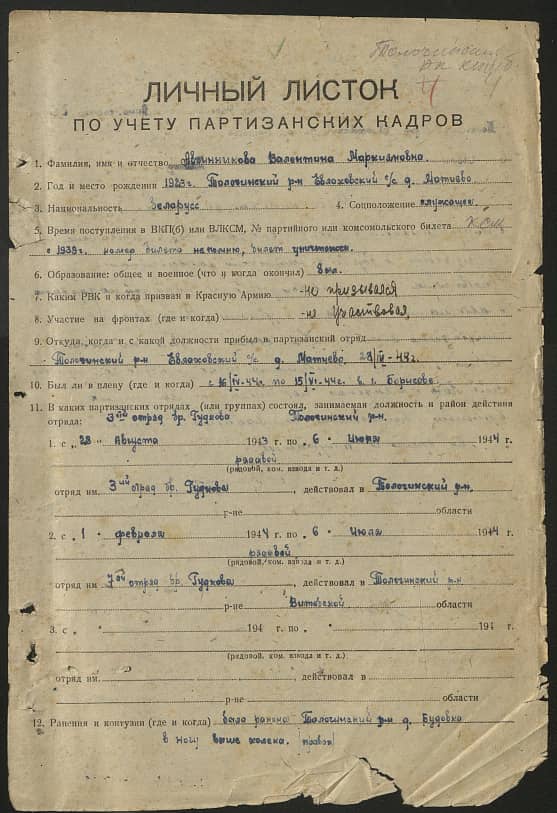 Толочинский
РК КП(б)Б
ЛИЧНЫЙ ЛИСТОК
ПО УЧЕТУ ПАРТИЗАНСКИХ КАДРОВ
1. Фамилия, имя и отчество Овчинникова Валентина Маркияновна.
2. Год и место рождения 1923г. Толочинский р-н Евлаховский с/с д. Матиево
3. Национальность Беларусс 4. Соцположение служащее.
5. Время поступления в ВКП(б) или ВЛКСМ, № партийного или комсомольского билета
с 1939г. номер билета не помню, билет уничтожен.
6. Образование: общее и военное (что и когда окончил) 8 кл.
7. Каким РВК и когда призван в Красную Армию не призывался
8. Участие на фронтах (где и когда) не участвовал
9. Откуда, когда и с какой должности прибыл в партизанский отряд
Толочинский р-н Евлаховский с/с д. Матиево, 28/IV-44г.
10. Был ли в плену (где и когда) с 16/IV-44г. по 15/VI-44г. в г. Борисове.
11. В каких партизанских отрядах (или группах) состоял, занимаемая должность и район действия
отряда: 3ий отряд бр. Гудкова Толочинский р-н.
1. с „28" Августа 1943 г. по „6" Июля 1944 г.
рядовой
(рядовой, ком. взвода и т. д.)
отряд им. 3ий отряд бр. Гудкова, действовал в Толочинский р-н.
р-не области
2. с „1" февраля 1944 г. по „6" Июля 1944 г.
рядовой
(рядовой, ком. взвода и т. д.)
отряд им. 7ой отряд бр. Гудкова, действовал в Толочинский р-н
р-не Витебской области
3. с „ 194 г. по „ " 194 г.
(рядовой, ком. взвода и т. д.)
отряд им. , действовал в
р-не области
12. Ранения и контузии (где и когда) была ранена Толочинский р-н д. Будовка
в ногу выше колена. (правой)